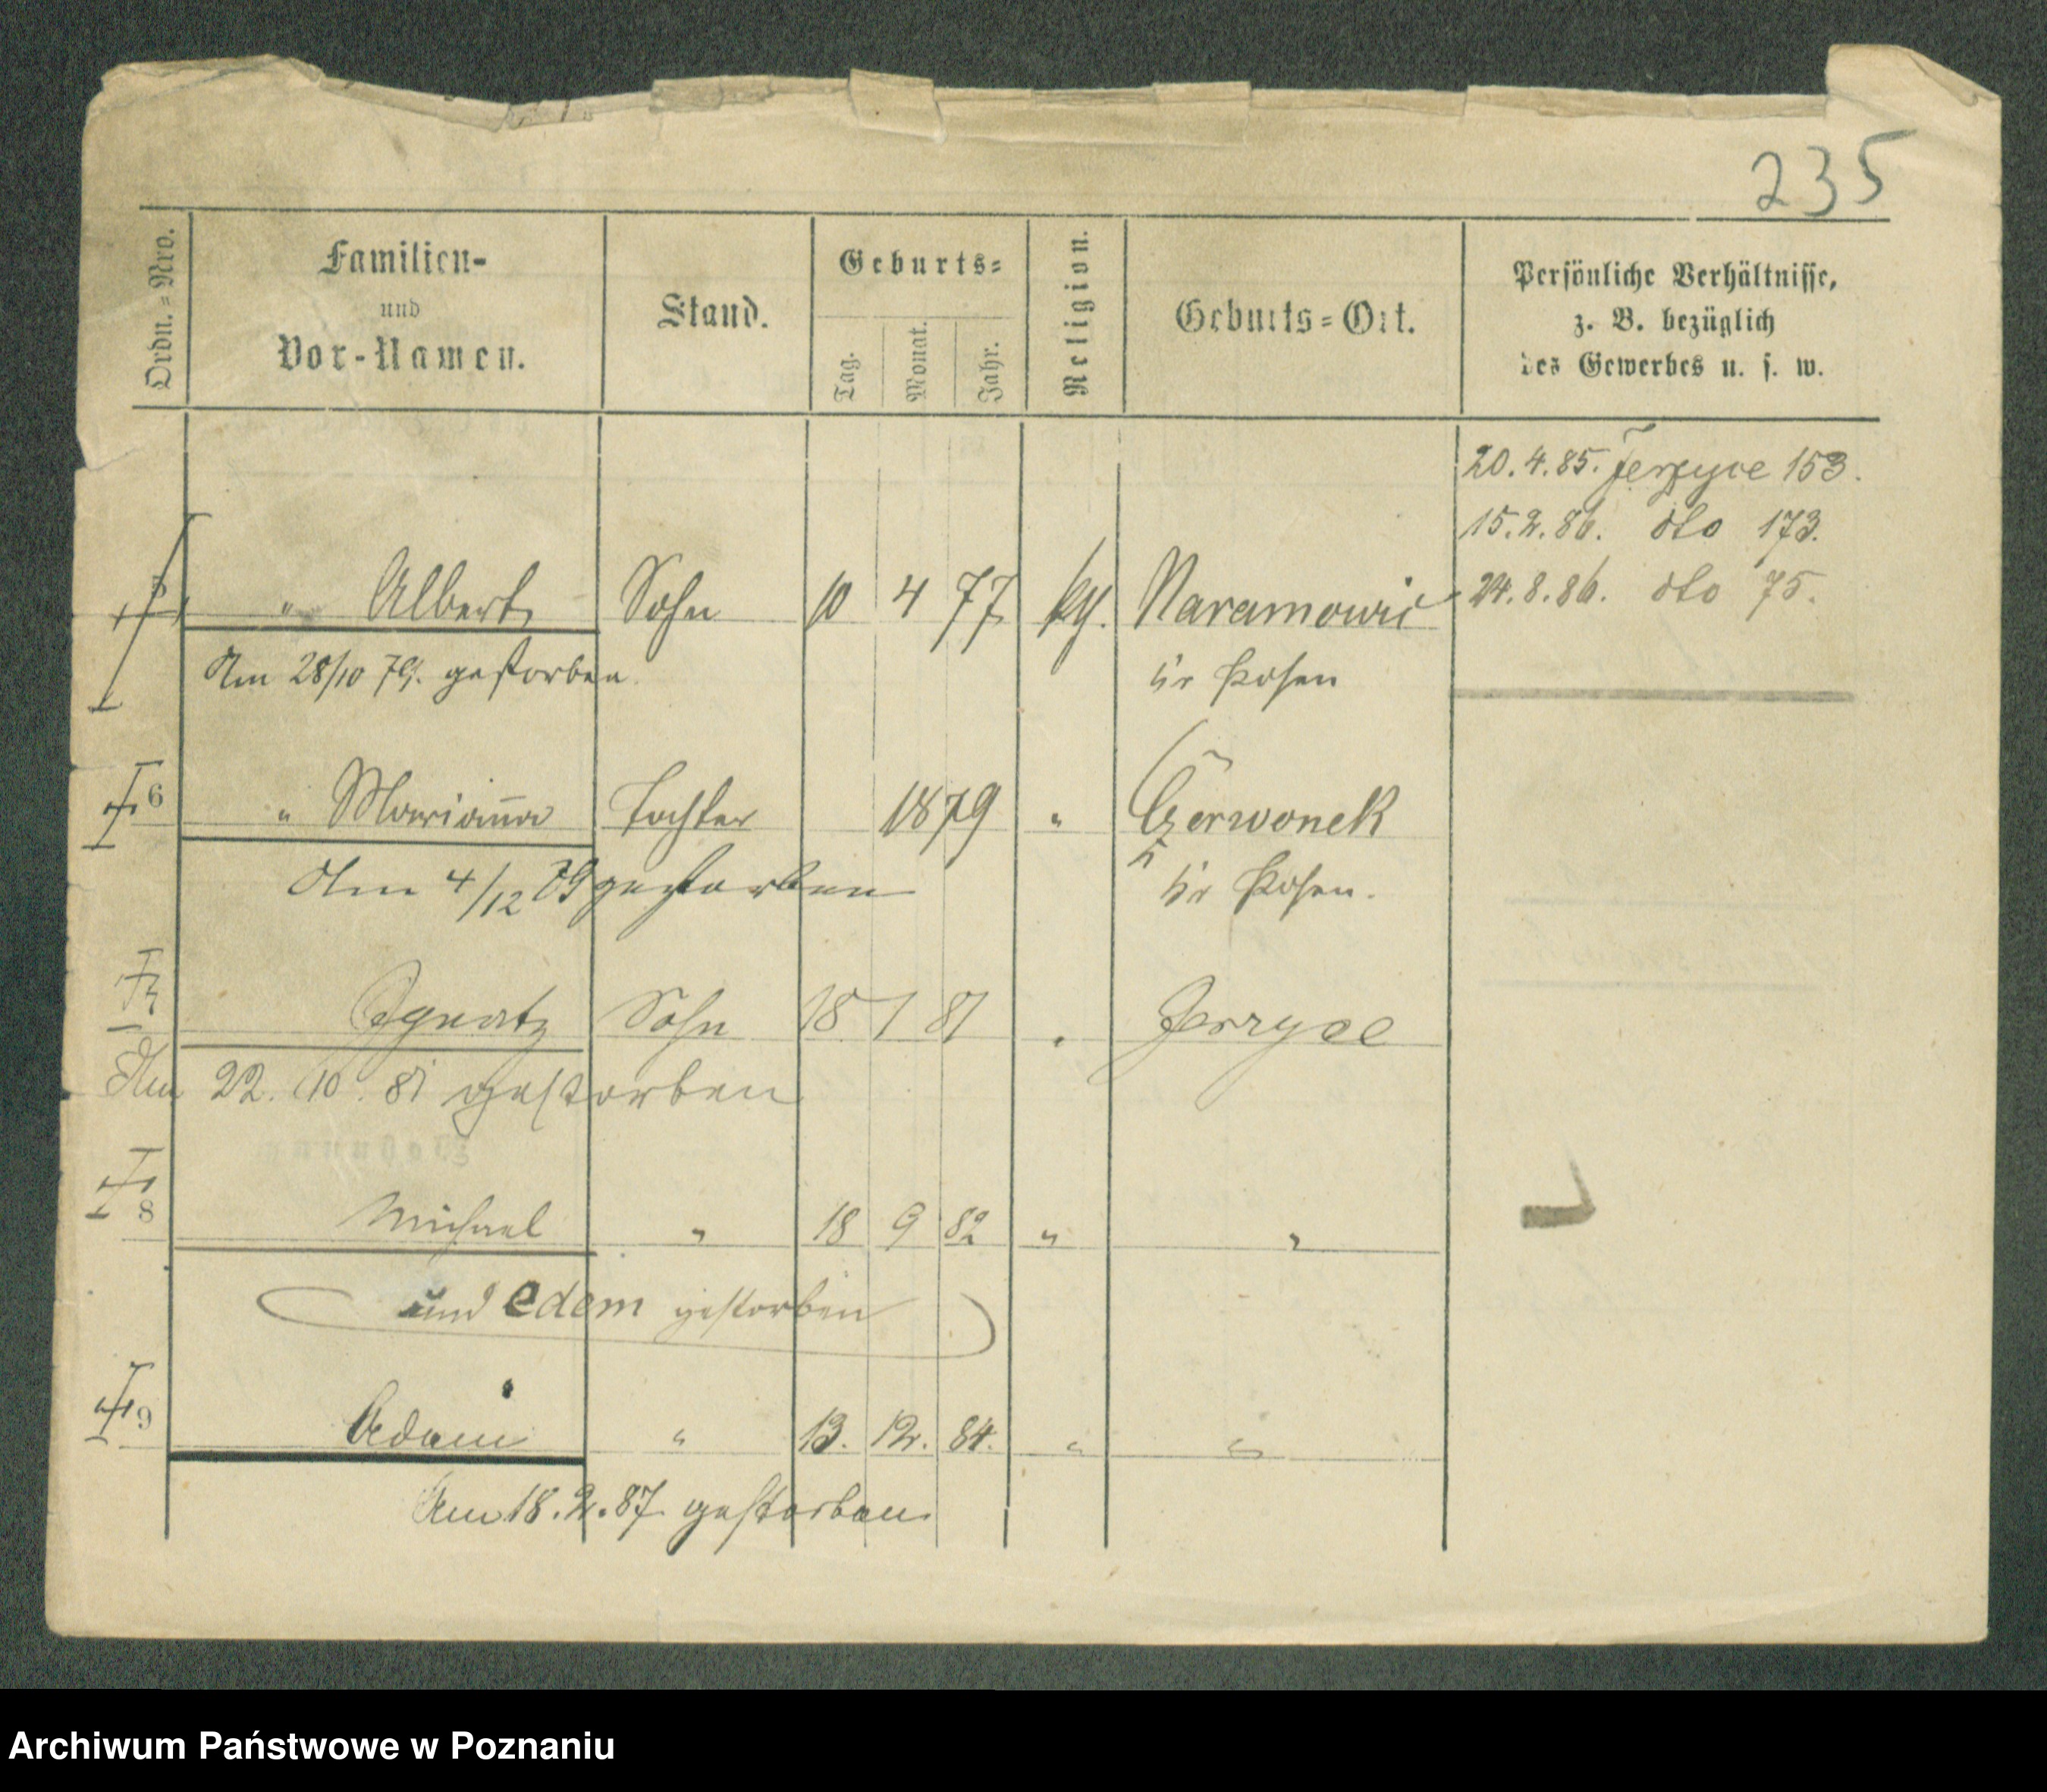 235
Ordn.=Nro.
Familien-
und
Vor-Namen.
Stand.
Geburts=
Tag.
Monat.
Jahr.
Religion.
Geburts=Ort.
Persönliche Verhältnisse,
z. B. bezüglich
des Gewerbes u. s. w.
20.4.85. Jerzyce 153.
15.2.86. dto 173.
24.8.86. dto 75.
5 " Albert Sohn 10 4 77 Naramowic
Am 28/10 79. gestorben.
Kr Posen
6 " Marianna Tochter 1879 " Czerwonek
Am 4/12 79 gestorben
Kr Posen.
7 Ignatz Sohn 18 7 81 " Jerzyce
Am 22. 10. 81 gestorben
8 Michael " 18 9 82 " "
gestorben
9 Adam " 13. 12. 84. " "
Am 18.2.87 gestorben
Archiwum Państwowe w Poznaniu